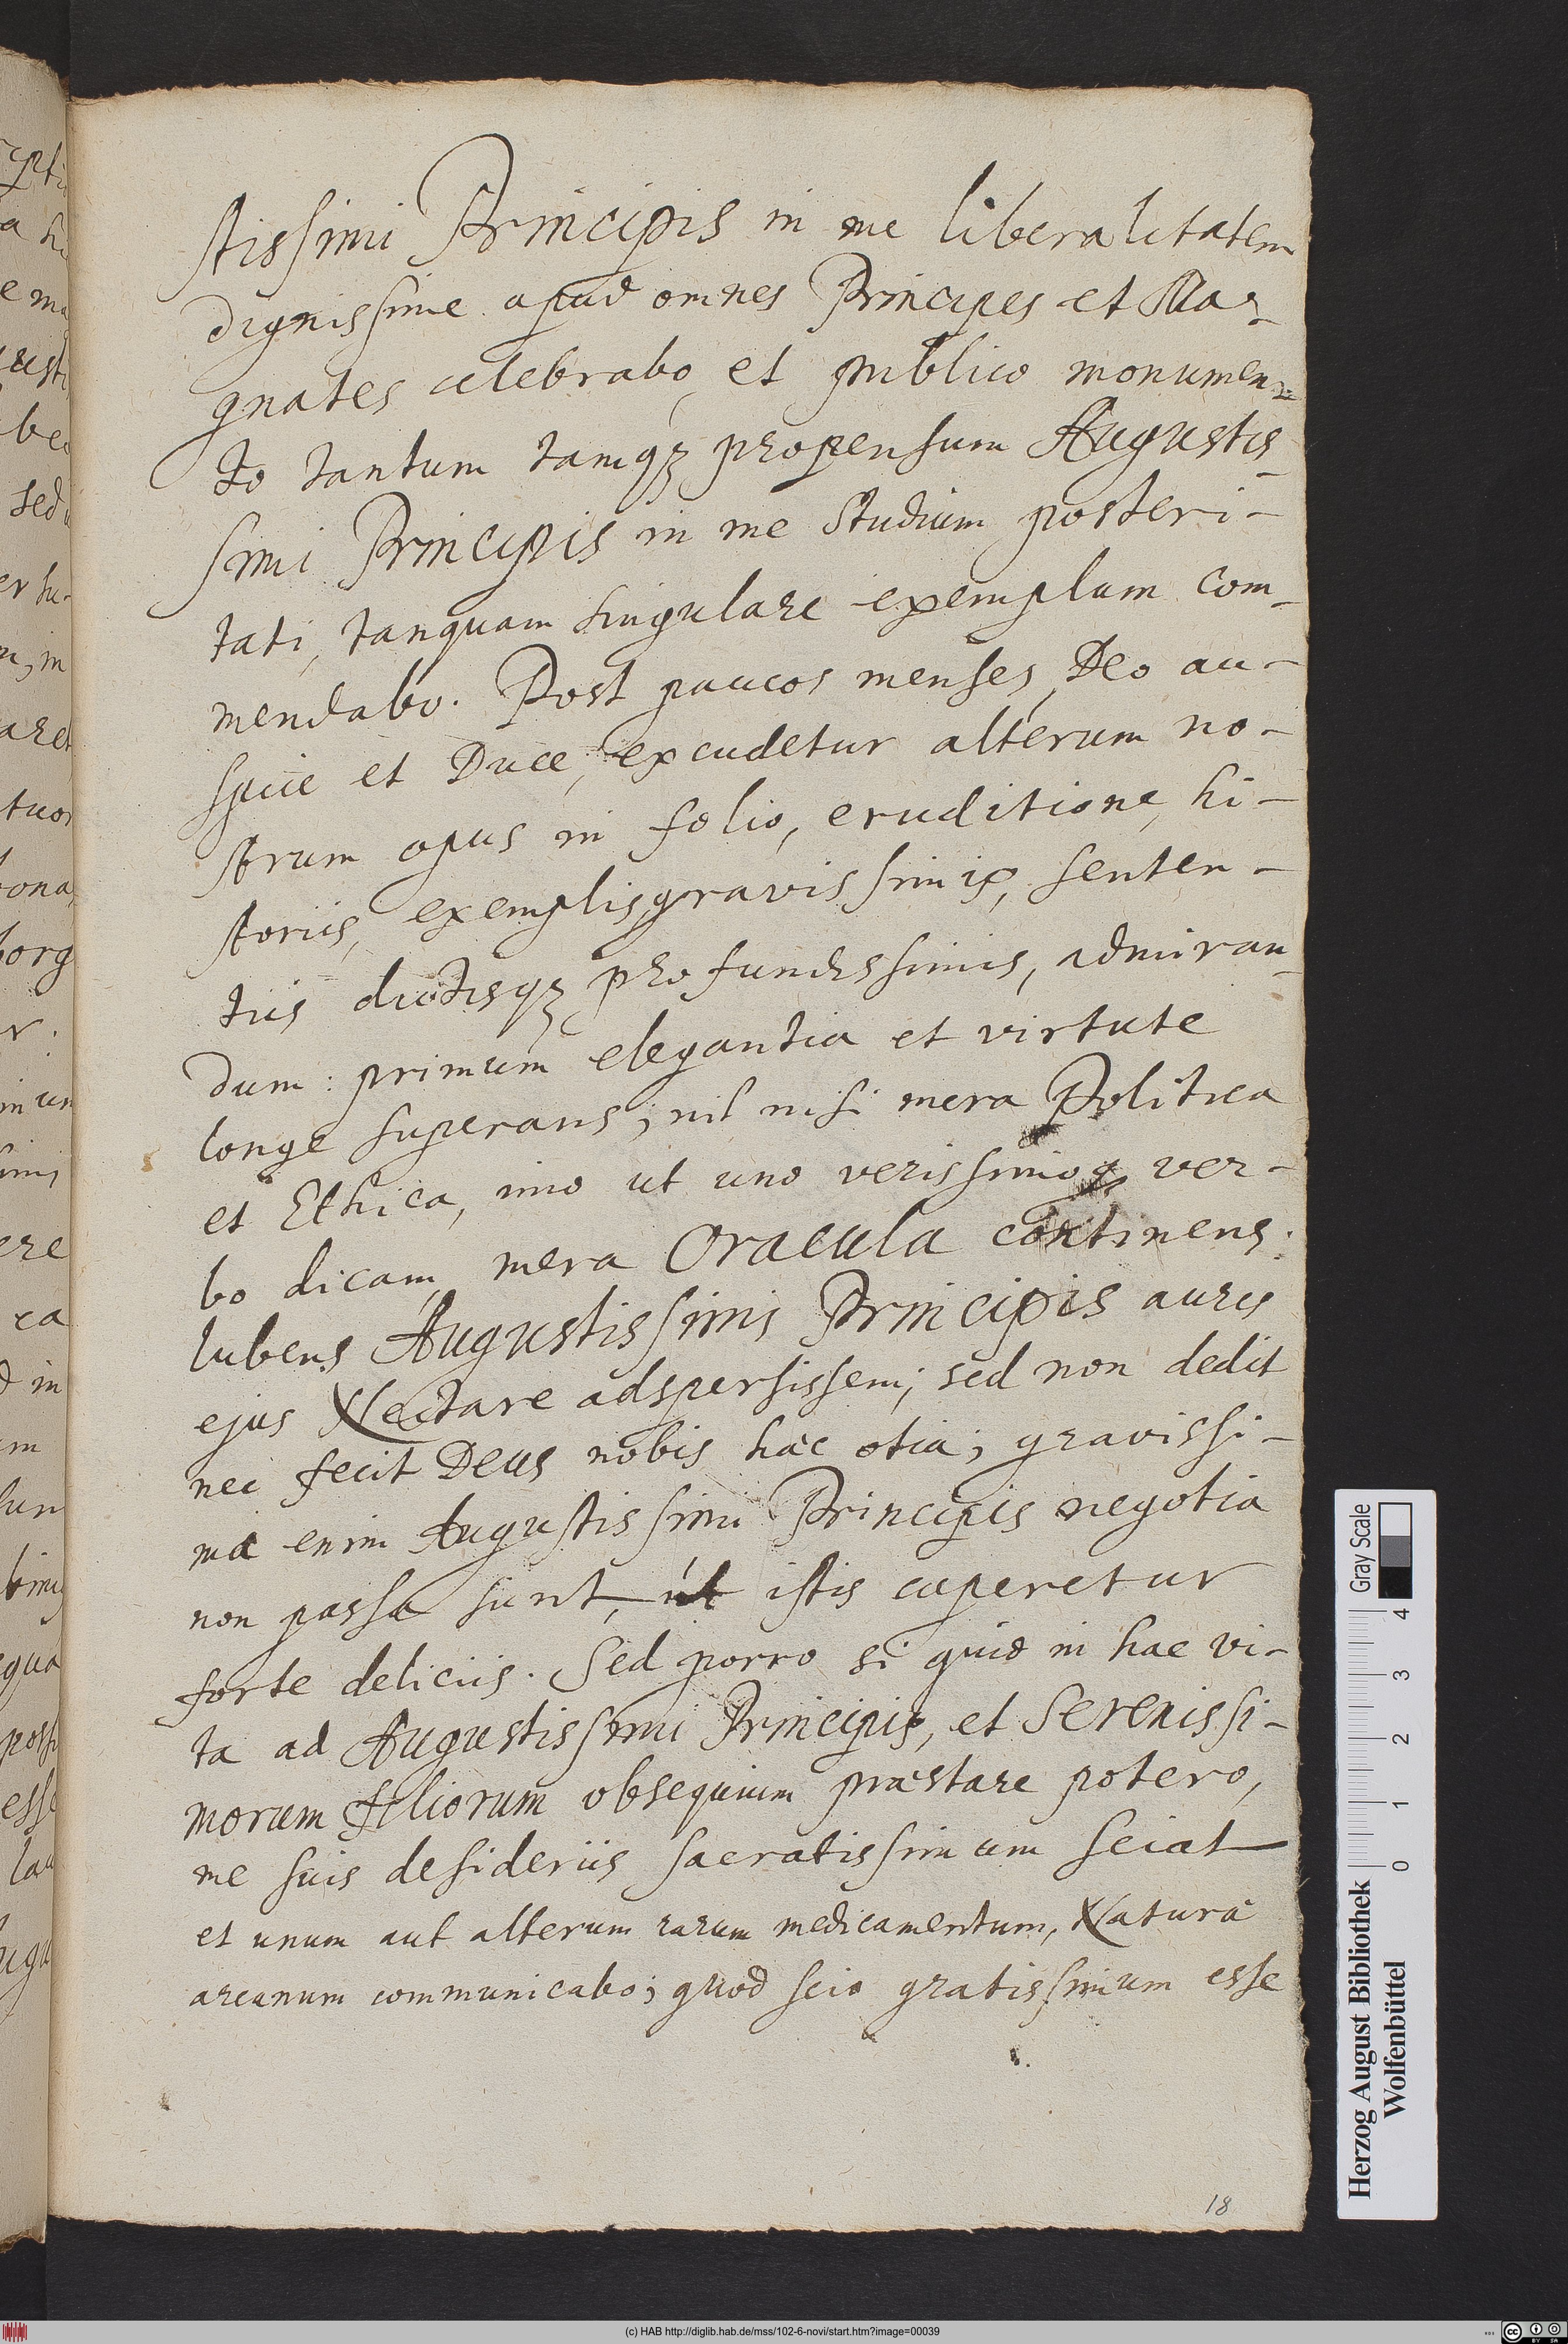 stissimi Principis in me liberalitatem
dignissime apud omnes Principes et Ma-
gnates celebrabo, et publico monumen-
to tantum tamq; propensum Augustis-
simi Principis in me studium posteri-
tati, tanquam singulare exemplum com-
mendabo. Post paucos menses, Deo au-
spice et Duce, excudetur alterum no-
strum opus in folio, eruditione, hi-
storiis, exemplis gravissimis, senten-
tiis dictisq; profundissimis, admiran-
dum: primum elegantia et virtute
longe superans; nil nisi mera Politica
et Ethica, imo ut uno verissimoq; ver-
bo dicam, mera Oracula continens.
lubens Augustissimi Principis aures
ejus Nectare adspersissem; sed non dedit
nec fecit Deus nobis hæc otia; gravissi-
ma enim Augustissimi Principis negotia
non passa sunt, ut istis caperetur
forte deliciis. Sed porro si quid in hac vi-
ta ad Augustissimi Principis, et Serenissi-
morum filiorum obsequium præstare potero,
me suis desideriis sacratissimum sciat
et unum aut alterum rarum medicamentum, Naturâ
arcanum communicabo; quod scio gratissimum esse
18
Herzog August Bibliothek
Wolfenbüttel
0 1 2 3 4
Gray Scale
(c) HAB http://diglib.hab.de/mss/102-6-novi/start.htm?image=00039